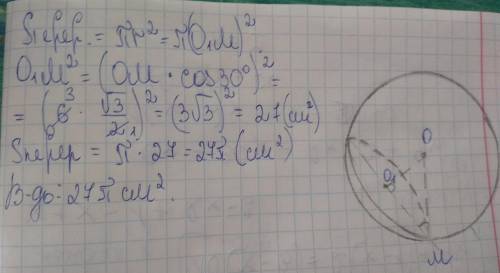 Sперер. = πr² = π(O₁M)²
O₁M² = (OM · cos30°)² =
= (6³ · √3/2₁)² = (3√3)² = 27(см²)
Sперер = π · 27 = 27π (см²)
В-дь: 27π см².
O
O₁
M